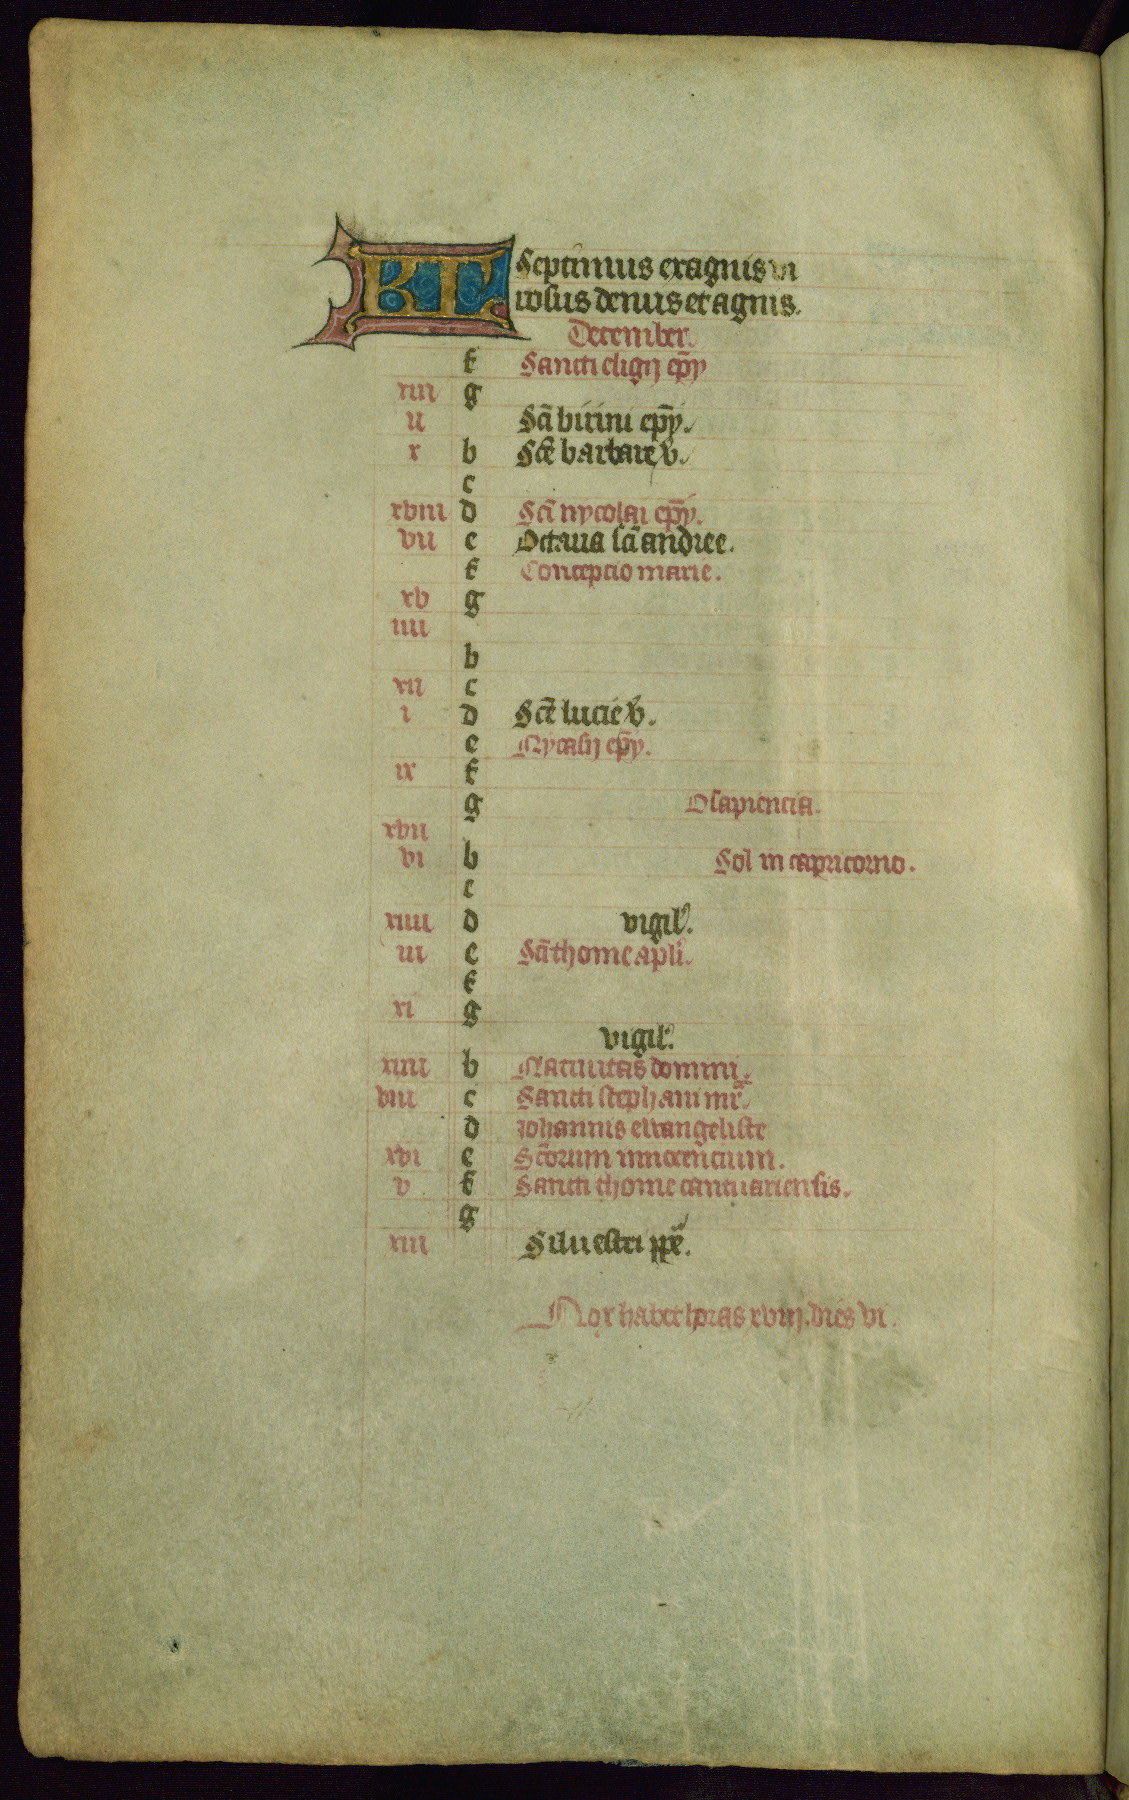 KL Septimus exagnis vi
rosus denus et agnis.
December.
f Sancti eligij ep̄y
xiii g
ii Sc̄i birini ep̄y.
x b Sc̄e barbare v.
c
xviii d Sc̄i nycolai ep̄y.
vii e Octaua sc̄i andree.
f Concepcio marie.
xv g
iiii
b
xii c
i d Sc̄e lucie v.
e Nycasij ep̄y.
ix f
g O sapiencia.
xvii
vi b Sol in capricorno.
c
xiiii d vigil'.
iii e Sc̄i thome apl̄i.
f
xi g
vigil'.
xiiii b Natiuitas domini.
viii c Sancti stephani mr̄.
d Iohannis ewangeliste
xvi e Sc̄orum innocencium.
v f Sancti thome cantuariensis.
g
xiii Siluestri pp̄e.
Nox habet horas xviij. dies vi.